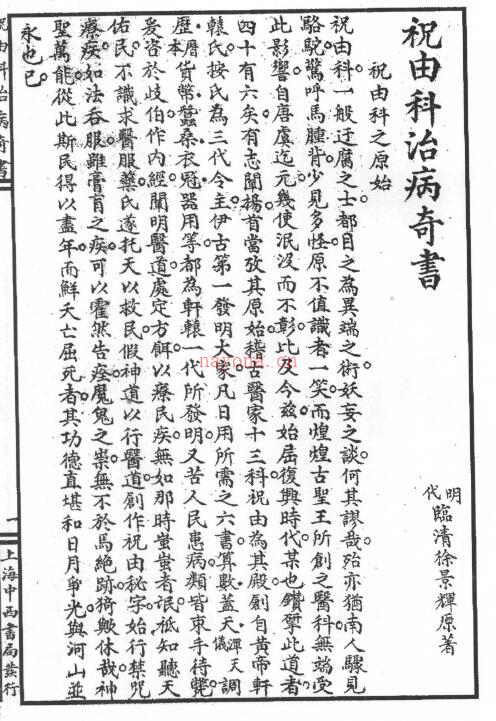 祝由科治病奇書
明代 臨清徐景輝原著
祝由科之原始
祝由科一般迂腐之士都目之為異端之術妖妄之談何其謬哉殆亦猶南人驟見
駱駝驚呼馬腫背少見多怪原不值識者一笑而煌煌古聖王所創之醫科無端受
此影響自唐虞迄元幾使泯沒而不彰比及今茲始屆復興時代某也鑽揅此道者
四十有六矣有志闡揚首當攷其原始稽古醫家十三科祝由為其殿創自黃帝軒
轅氏按氏為三代令主伊古第一發明大家凡日用所需之六書算數蓋天渾天儀調
歷曆本貨幣蠶桑衣冠器用等都為軒轅一代所發明又苦人民患病類皆束手待斃
爰咨於歧伯作內經闡明醫道處定方餌以療民疾無如那時蚩蚩者氓祗知聽天
佑民不識求醫服藥氏遂托天以救民假神道以行醫道創作祝由秘字始行禁咒
療疾如法吞服雖膏肓之疾可以霍然告痊魔鬼之祟無不於焉絕跡猗歟休哉神
聖萬能從此斯民得以盡年而鮮夭亡屈死者其功德直堪和日月爭光與河山並
永也已
祝由科治病奇書
一
上海中西書局發行
nayona.cn